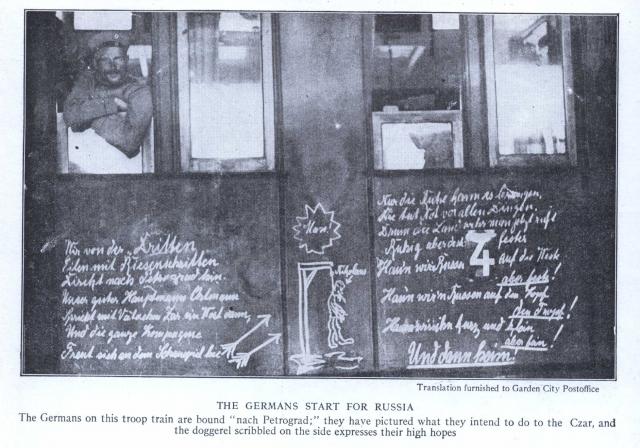 Wir von der „Dritten
Eilen mit Riesenschritten
Direkt nach Petrograd hin.
Unser guter Hauptmann
Spricht mit Väterchen Zar ein Wort dann,
Und die ganze Kompagnie
Freut sich an dem
Nikolaus
Nur die Ruhe kann es bringen,
Die tut Not vor allen Dingen,
Drum die Landwehrman jetzt ruft
Ruhig aber feste
Hau'n wir'n Russen auf die Weste
aber feste!
Hau'n wir'n Russen auf den Kopf
kurz und klein
aber fein!
Und dann heim!
Translation furnished to Garden City Postoffice
THE GERMANS START FOR RUSSIA
The Germans on this troop train are bound "nach Petrograd;" they have pictured what they intend to do to the Czar, and
the doggerel scribbled on the side expresses their high hopes